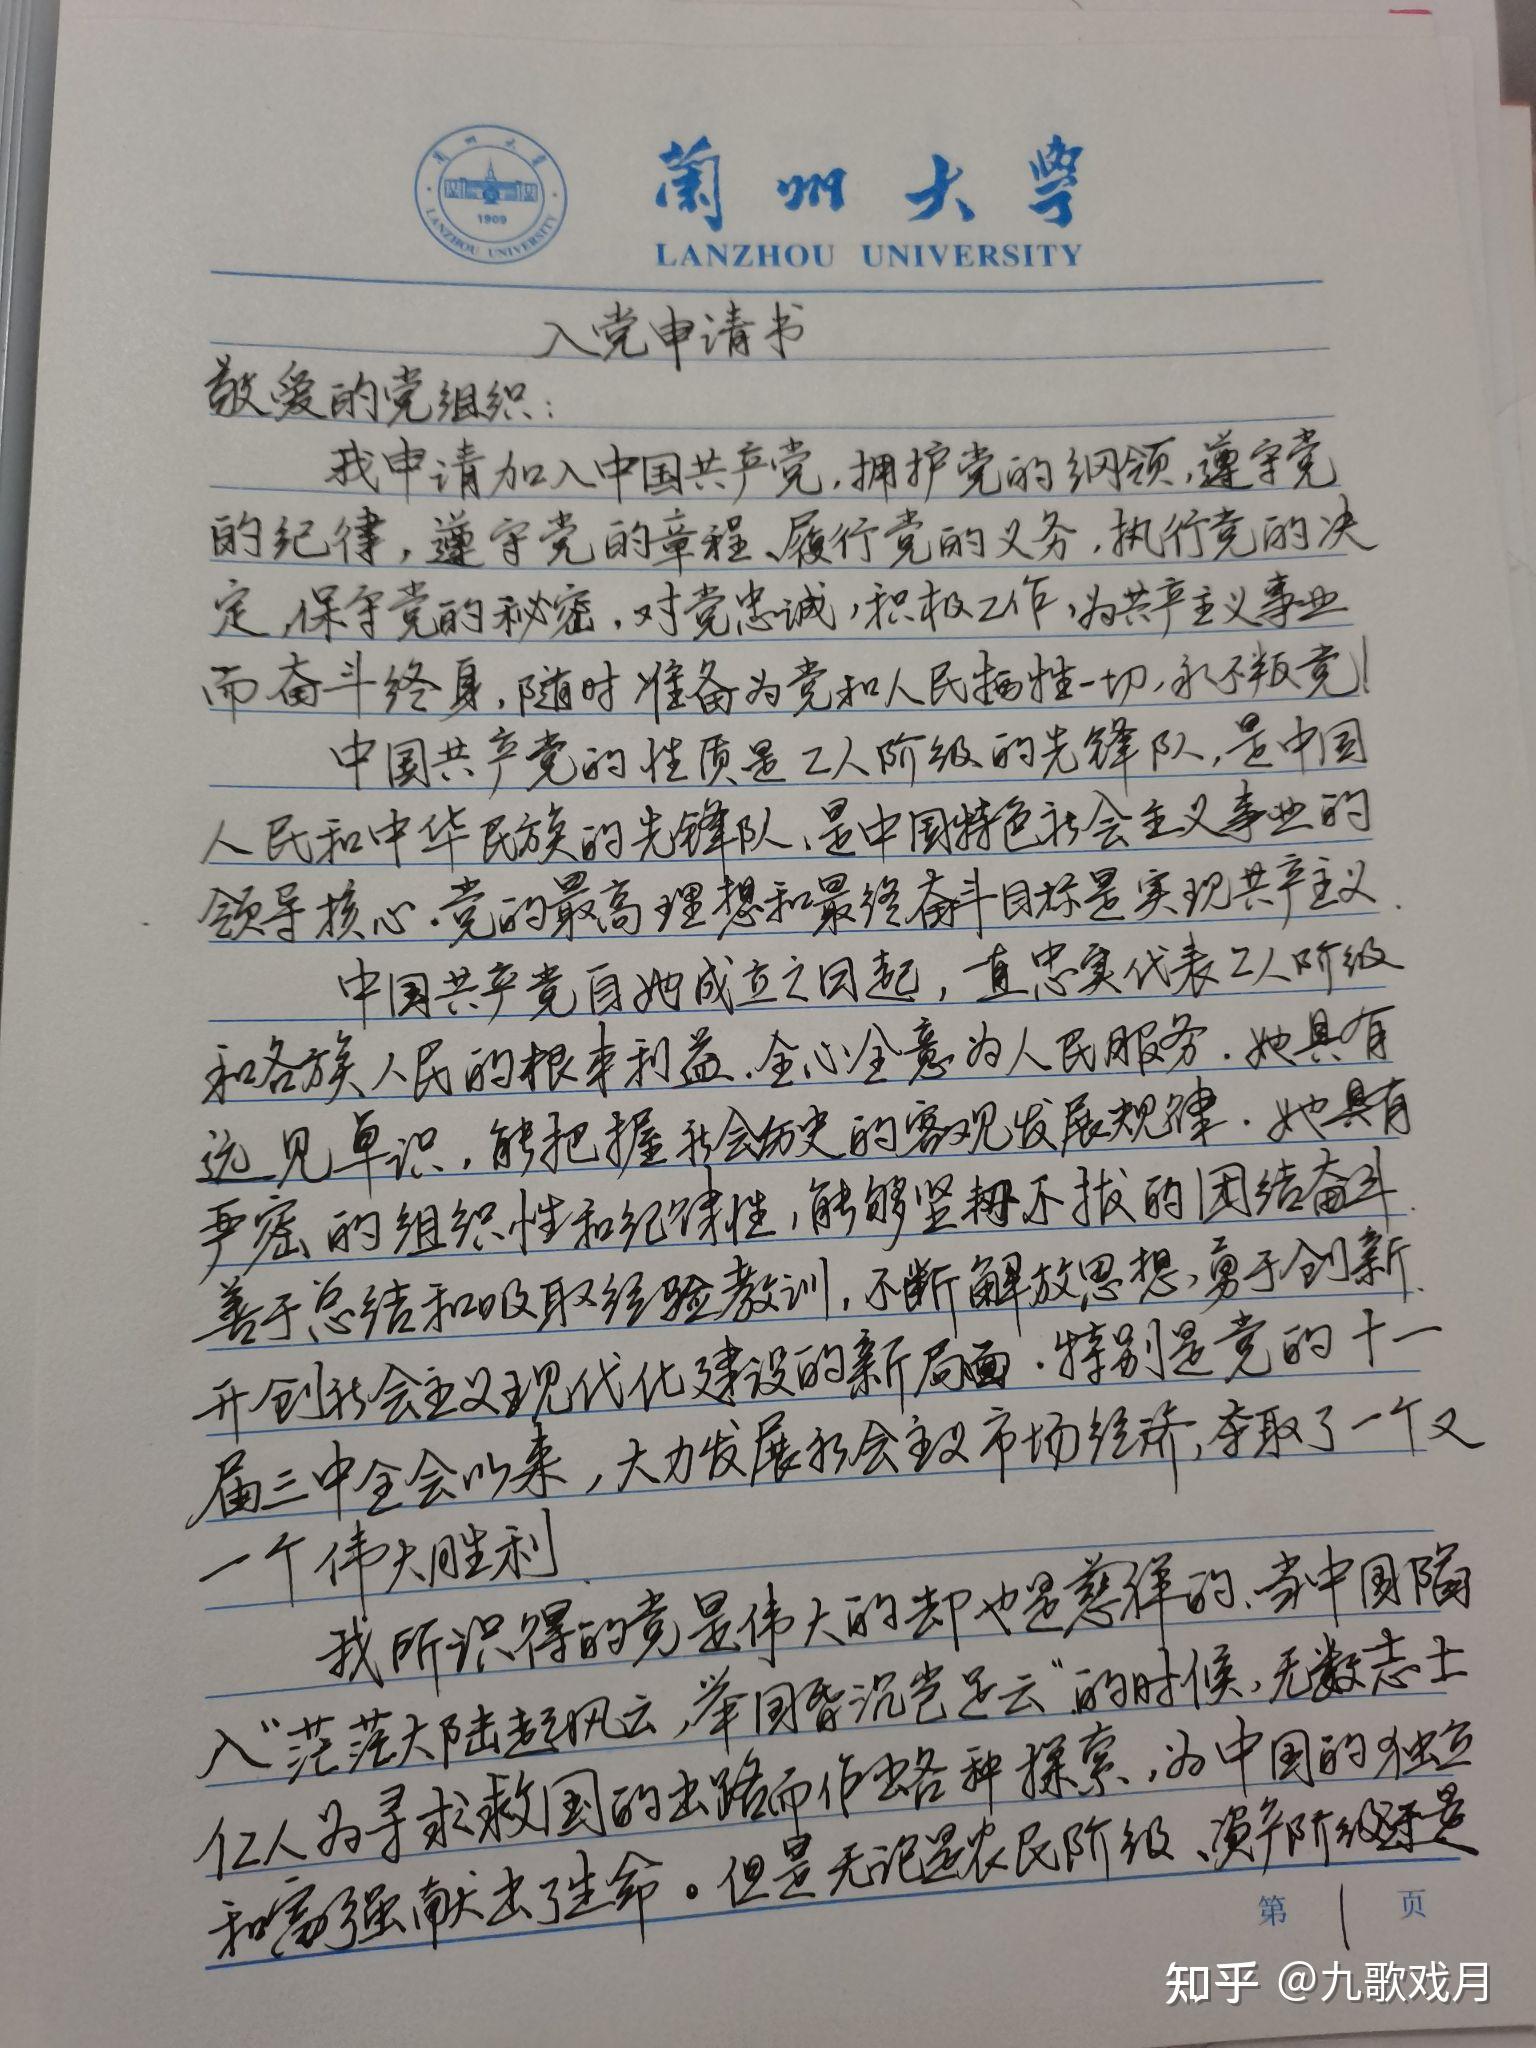 兰州大学
1909
LANZHOU UNIVERSITY
兰州大学
LANZHOU UNIVERSITY
入党申请书
敬爱的党组织：
我申请加入中国共产党，拥护党的纲领，遵守党
的纪律，遵守党的章程、履行党的义务，执行党的决
定，保守党的秘密，对党忠诚，积极工作，为共产主义事业
而奋斗终身，随时准备为党和人民牺牲一切，永不叛党！
中国共产党的性质是工人阶级的先锋队，是中国
人民和中华民族的先锋队，是中国特色社会主义事业的
领导核心．党的最高理想和最终奋斗目标是实现共产主义．
中国共产党自她成立之日起，一直忠实代表工人阶级
和各族人民的根本利益．全心全意为人民服务．她具有
远见卓识，能把握社会历史的客观发展规律．她具有
严密的组织性和纪律性，能够坚韧不拔的团结奋斗．
善于总结和吸取经验教训，不断解放思想，勇于创新．
开创社会主义现代化建设的新局面．特别是党的十一
届三中全会以来，大力发展社会主义市场经济，夺取了一个又
一个伟大胜利．
我所识得的党是伟大的却也是慈祥的、当中国陷
入“茫茫大陆起风云，举国昏沉岂足云”的时候，无数志士
仁人为寻求救国的出路而作出各种探索，为中国的独立
和富强献出了生命。但是无论是农民阶级、资产阶级还是
第 1 页
知乎 @九歌戏月